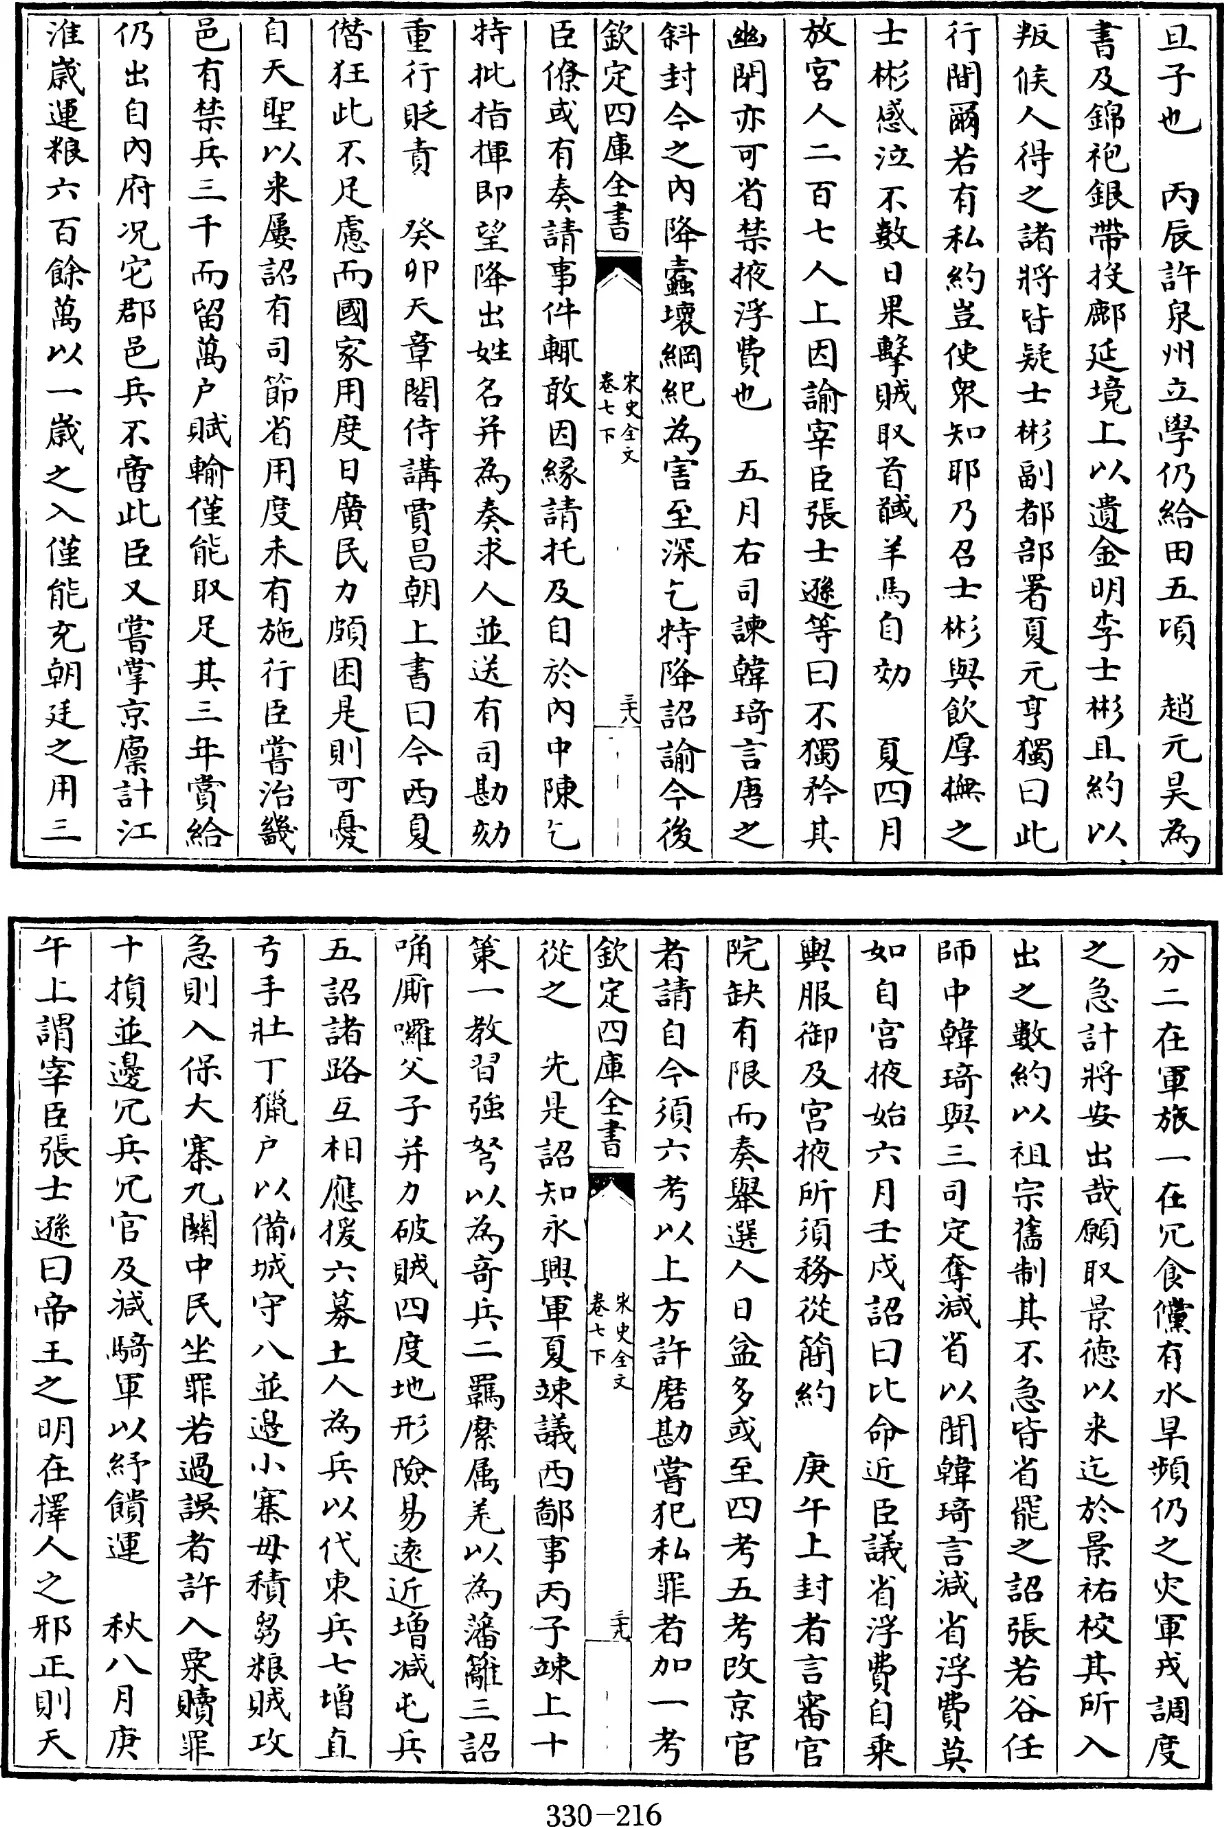 旦子也　丙辰許泉州立學仍給田五頃　趙元昊為
書及錦袍銀帶投鄜延境上以遺金明李士彬且約以
叛候人得之諸將皆疑士彬副都部署夏元亨獨曰此
行間爾若有私約豈使衆知耶乃召士彬與飲厚撫之
士彬感泣不數日果擊賊取首馘羊馬自効　夏四月
放宮人二百七人上因諭宰臣張士遜等曰不獨矜其
幽閉亦可省禁掖浮費也　五月右司諫韓琦言唐之
斜封今之內降蠧壞綱紀為害至深乞特降詔諭今後
欽定四庫全書
宋史全文
卷七下
三十八
臣僚或有奏請事件輒敢因緣請托及自於內中陳乞
特批指揮即望降出姓名并為奏求人並送有司勘劾
重行貶責　癸卯天章閣侍講賈昌朝上書曰今西夏
僭狂此不足慮而國家用度日廣民力頗困是則可憂
自天聖以來屢詔有司節省用度未有施行臣嘗治畿
邑有禁兵三千而留萬戶賦輸僅能取足其三年賞給
仍出自內府况它郡邑兵不啻此臣又嘗掌京廪計江
淮歲運粮六百餘萬以一歲之入僅能充朝廷之用三
分二在軍旅一在冗食儻有水旱頻仍之灾軍戎調度
之急計將安出哉願取景德以來迄於景祐校其所入
出之數約以祖宗舊制其不急皆省罷之詔張若谷任
師中韓琦與三司定奪減省以聞韓琦言減省浮費莫
如自宮掖始六月壬戍詔曰比命近臣議省浮費自乘
輿服御及宮掖所須務從簡約　庚午上封者言審官
院缺有限而奏舉選人日益多或至四考五考改京官
者請自今須六考以上方許磨勘嘗犯私罪者加一考
欽定四庫全書
宋史全文
卷七下
三十九
從之　先是詔知永興軍夏竦議西鄙事丙子竦上十
策一教習強弩以為奇兵二羈縻属羌以為藩籬三詔
唃厮囉父子并力破賊四度地形險易逺近增减屯兵
五詔諸路互相應援六募土人為兵以代東兵七增直
弓手壯丁獵戶以備城守八並邉小寨毋積芻粮賊攻
急則入保大寨九關中民坐罪若過誤者許入粟贖罪
十損並邊冗兵冗官及减騎軍以紓饋運　秋八月庚
午上謂宰臣張士遜曰帝王之明在擇人之邪正則天
330-216